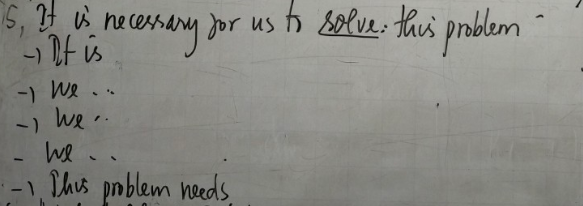 5, It is necessary for us to solve. this problem -
→ It is
→ We ...
→ We ..
- We ..
→ This problem needs